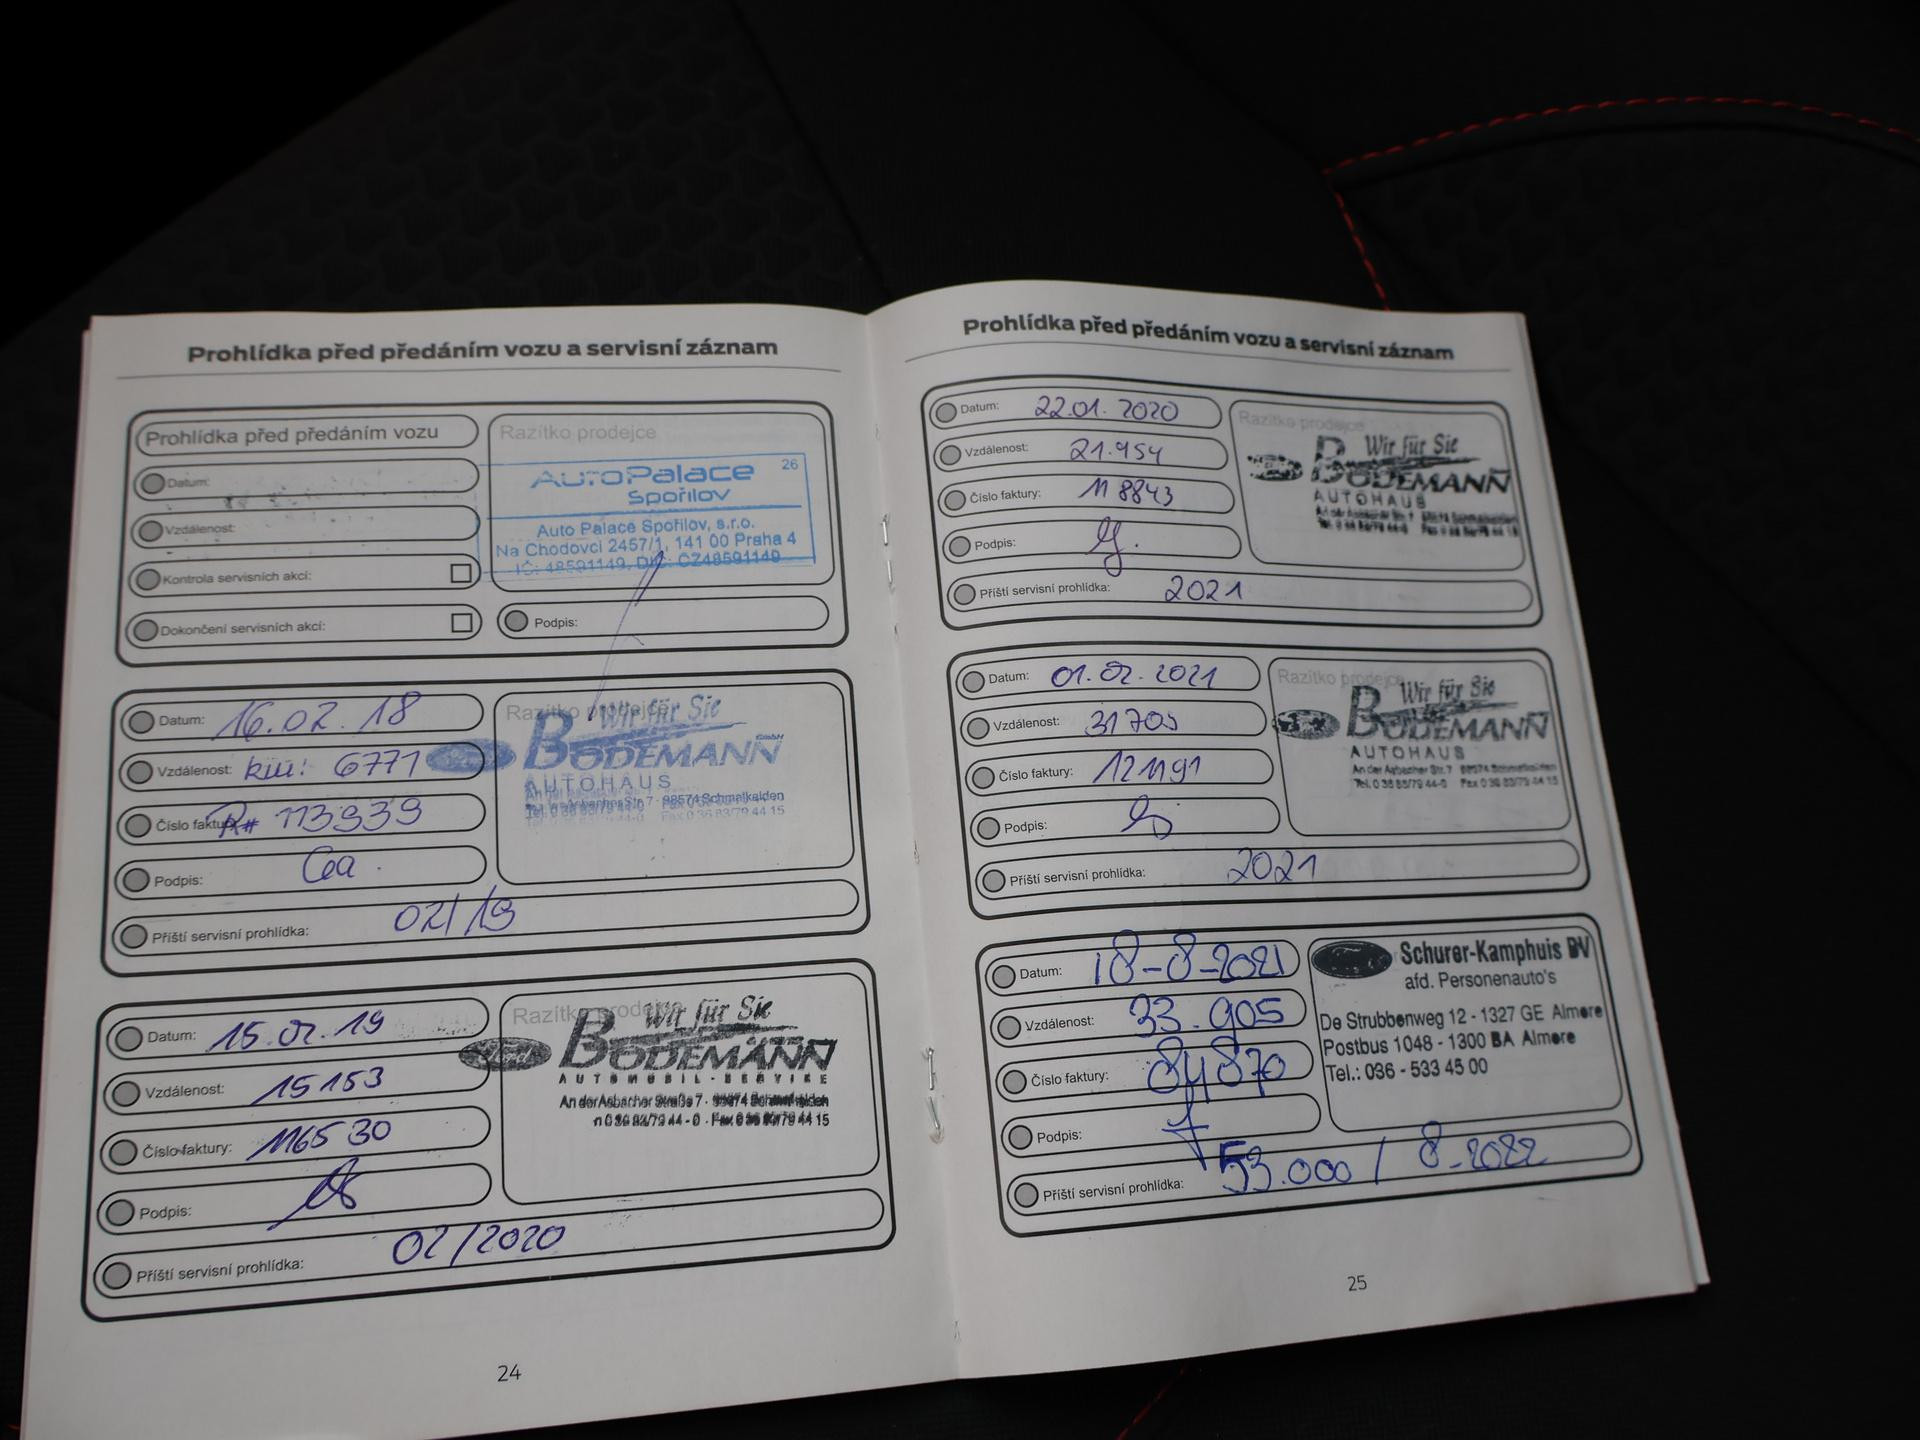 Prohlídka před předáním vozu a servisní záznam
Prohlídka před předáním vozu
Datum:
Vzdálenost:
Kontrola servisních akcí:
Dokončení servisních akcí:
Razítko prodejce
26
AutoPalace
Spořilov
Auto Palace Spořilov, s.r.o.
Na Chodovci 2457/1, 141 00 Praha 4
IČ: 48591149, DIČ: CZ48591149
Podpis:
Datum: 16.02.18
Vzdálenost: km: 6771
Číslo faktury: R# 113939
Podpis:
Příští servisní prohlídka: 02/19
Razítko prodejce
Wir für Sie
BODEMANN GmbH
AUTOHAUS
An der Asbacher Str. 7 · 98574 Schmalkalden
Tel. 0 36 83/79 44-0 Fax 0 36 83/79 44 15
Datum: 15.02.19
Vzdálenost: 15153
Číslo faktury: 116530
Podpis:
Příští servisní prohlídka: 02/2020
Razítko prodejce
Ford
Wir für Sie
BODEMANN
AUTOMOBIL-SERVICE
An der Asbacher Straße 7 · 98574 Schmalkalden
0 36 83/79 44-0 · Fax 0 36 83/79 44 15
24
Prohlídka před předáním vozu a servisní záznam
Datum: 22.01.2020
Vzdálenost: 21.954
Číslo faktury: 118843
Podpis:
Příští servisní prohlídka: 2021
Razítko prodejce
Wir für Sie
BODEMANN
AUTOHAUS
An der Asbacher Str. 7 98574 Schmalkalden
Tel. 0 36 83/79 44-0 Fax 0 36 83/79 44 15
Datum: 01.02.2021
Vzdálenost: 31705
Číslo faktury: 121191
Podpis:
Příští servisní prohlídka: 2021
Razítko prodejce
Wir für Sie
BODEMANN
AUTOHAUS
An der Asbacher Str. 7 98574 Schmalkalden
Tel. 0 36 83/79 44-0 Fax 0 36 83/79 44 15
Datum: 18-8-2021
Vzdálenost: 33.905
Číslo faktury: 84870
Podpis:
Příští servisní prohlídka: 53.000 / 8-2022
Schurer-Kamphuis BV
afd. Personenauto's
De Strubbenweg 12 - 1327 GE Almere
Postbus 1048 - 1300 BA Almere
Tel.: 036 - 533 45 00
25